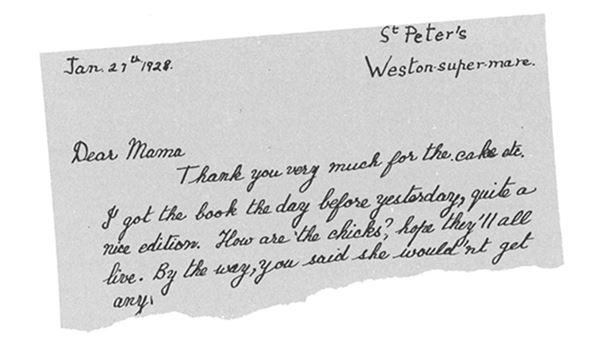 St Peter's
Jan. 27th 1928.
Weston-super-mare.
Dear Mama
Thank you very much for the cake etc.
I got the book the day before yesterday, quite a
nice edition. How are the chicks? hope they'll all
live. By the way, you said she would'nt get
any.